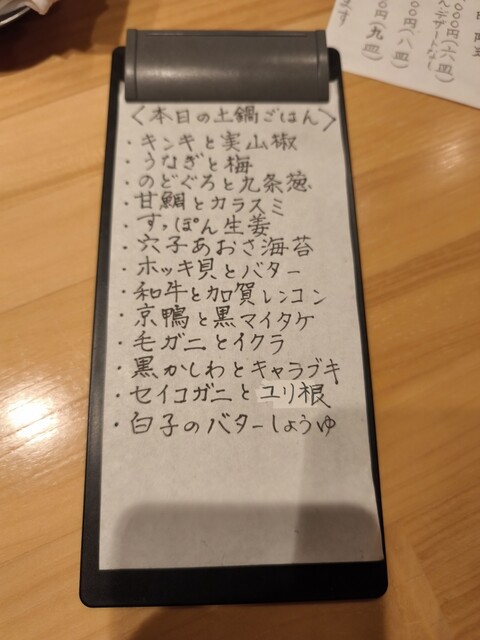 ＜本日の土鍋ごはん＞
・キンキと実山椒
・うなぎと梅
・のどぐろと九条葱
・甘鯛とカラスミ
・すっぽん生姜
・穴子あおさ海苔
・ホッキ貝とバター
・和牛と加賀レンコン
・京鴨と黒マイタケ
・毛ガニとイクラ
・黒かしわとキャラブキ
・セイコガニとユリ根
・白子のバターしょうゆ
000円(六皿)
000円(八皿)
円(九皿)
ます